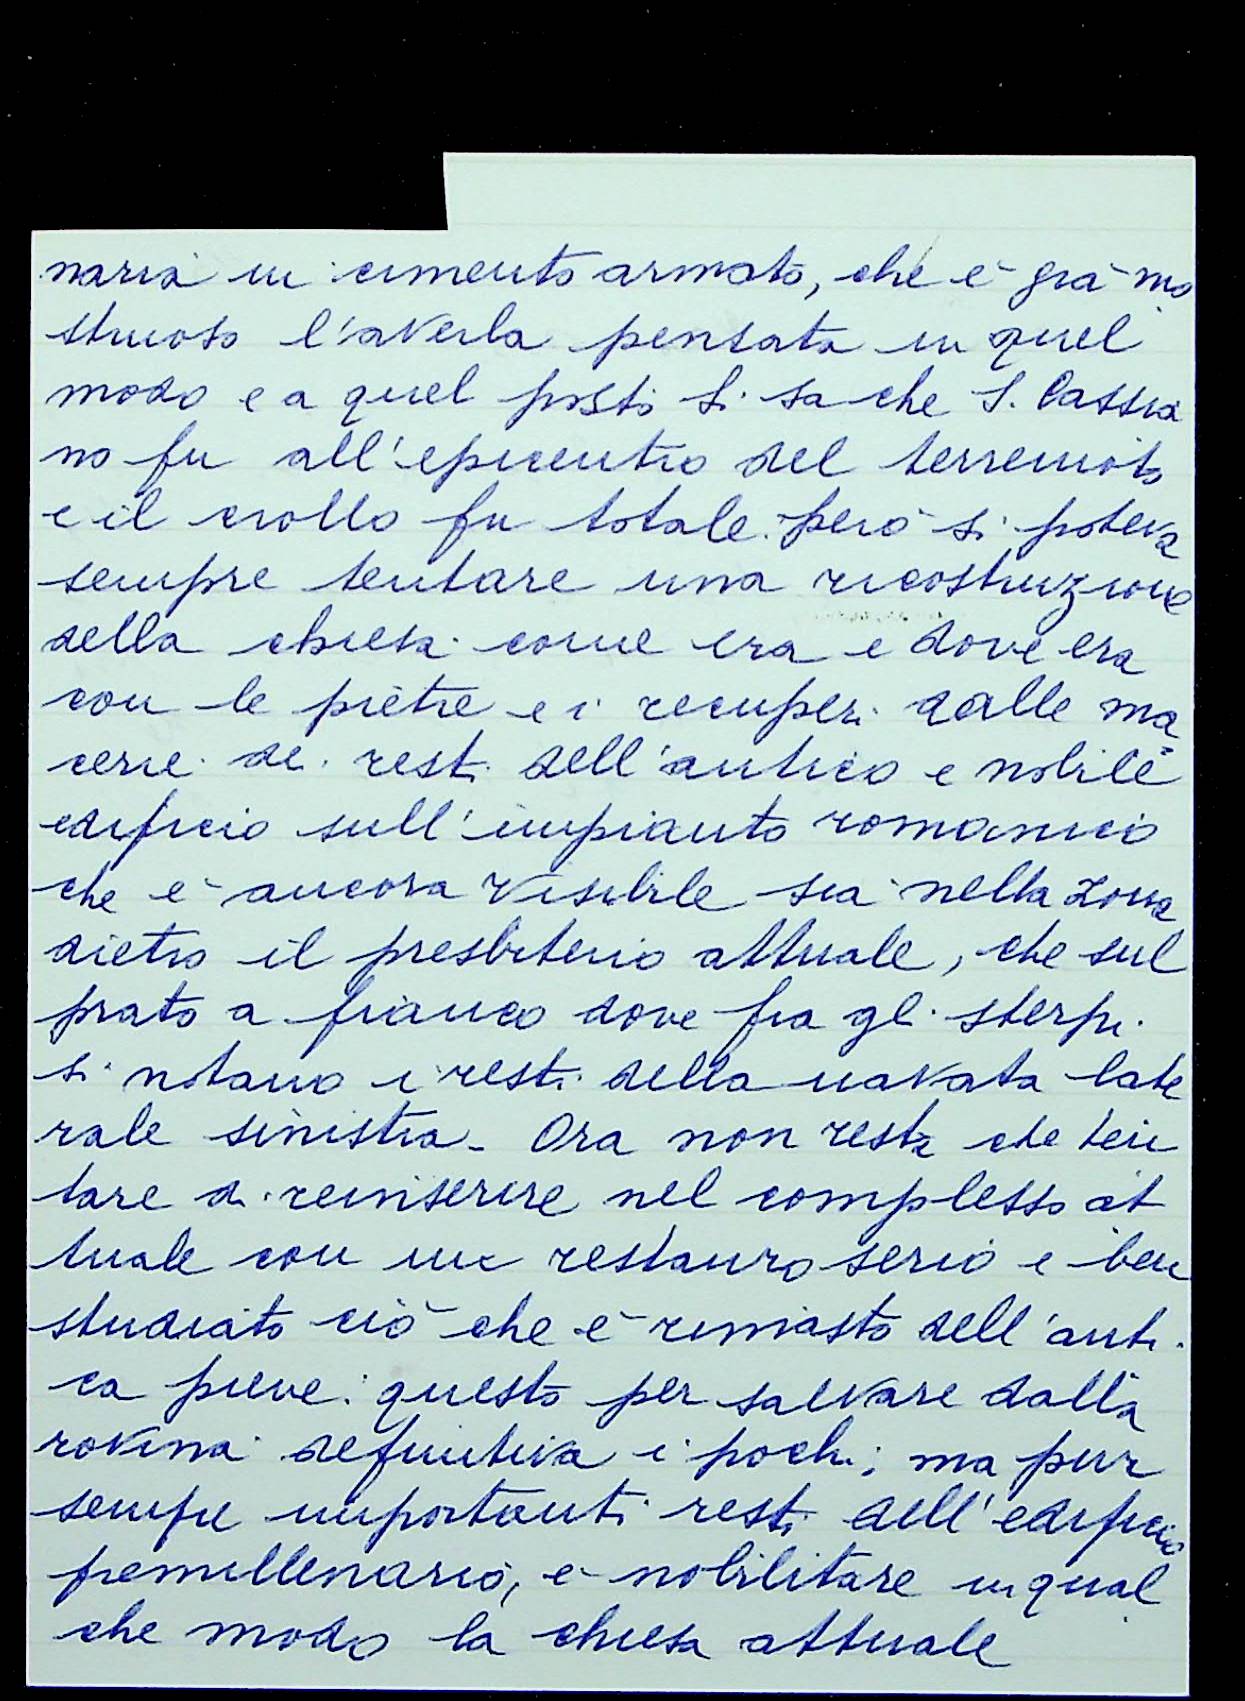 naria in cimento armato, che è già mo
struoso l'averla pensata in quel
modo e a quel posto si sa che S. Cassia
no fu all'epicentro del terremoto
e il crollo fu totale. però si poteva
sempre tentare una ricostruzione
della chiesa come era e dove era
con le pietre e i recuperi dalle ma
cerie dei resti dell'antico e nobile
edificio sull'impianto romanico
che è ancora visibile sia nella zona
dietro il presbiterio attuale, che sul
prato a fianco dove fra gli sterpi
si notano i resti della navata late
rale sinistra - Ora non resta che ten
tare di reinserire nel complesso at
tuale con un restauro serio e ben
studiato ciò che è rimasto dell'anti
ca pieve: questo per salvare dalla
rovina definitiva i pochi, ma pur
sempre importanti resti dell'edificio
premillenario, e nobilitare in qual
che modo la chiesa attuale